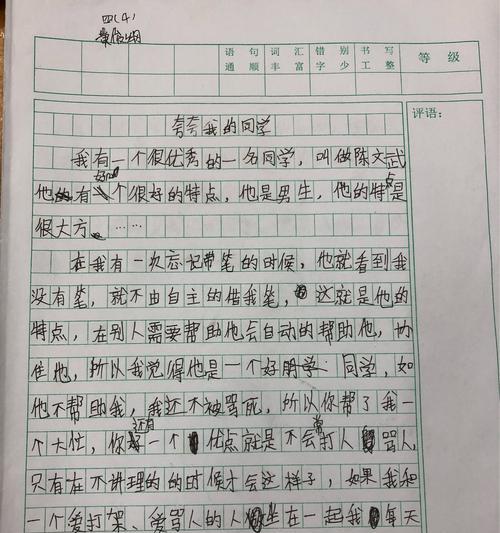 四(4)
语句通顺 词汇丰富 错别字少 书写工整 等级
评语:
夸夸我的同学
我有一个很优秀的一名同学，叫做陈文武
他有好几个很好的特点，他是男生，他的特点是
很大方。……
在我有一次忘记带笔的时候，他就看到我
没有笔，就不由自主的借我笔，这就是他的
特点，在别人需要帮助他会自动的帮助他，协
住他，所以我觉得他是一个好同学，如
他不帮助我，我还不被骂死，所以你帮了我一
个大忙，你还有一个优点就是不会常打人骂人，
只有在不讲理的的时候才会这样子，如果我和
一个爱打架、爱骂人的人坐在一起我每天